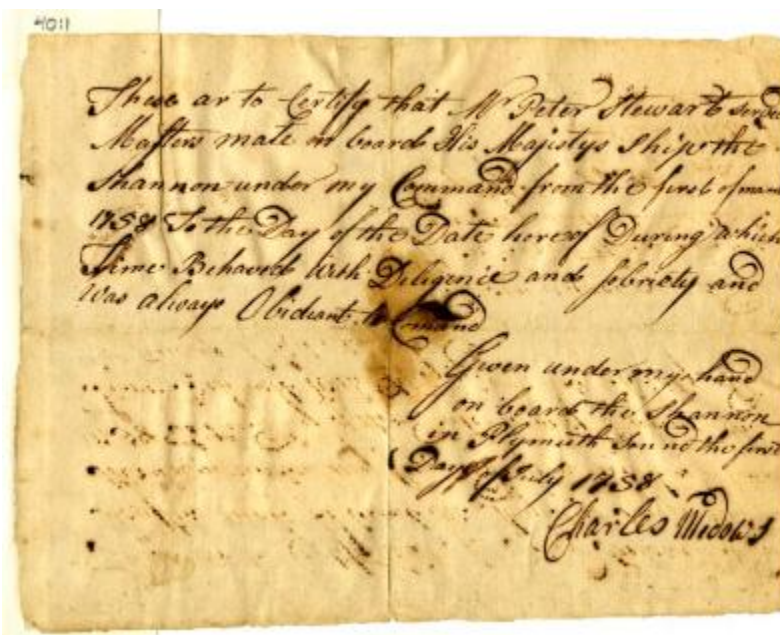 4011
These ar to Certify that Mr Peter Stewart served
Masters mate on board His Majestys Ship the
Shannon under my Command from the first of
1758 To the Day of the Date hereof During which
Time Behaved with Diligence and sobriety and
Was always Obidiant to Comand
Given under my hand
on board the Shannon
in Plymuth Sound the first
Day of July 1758
Charles Medows